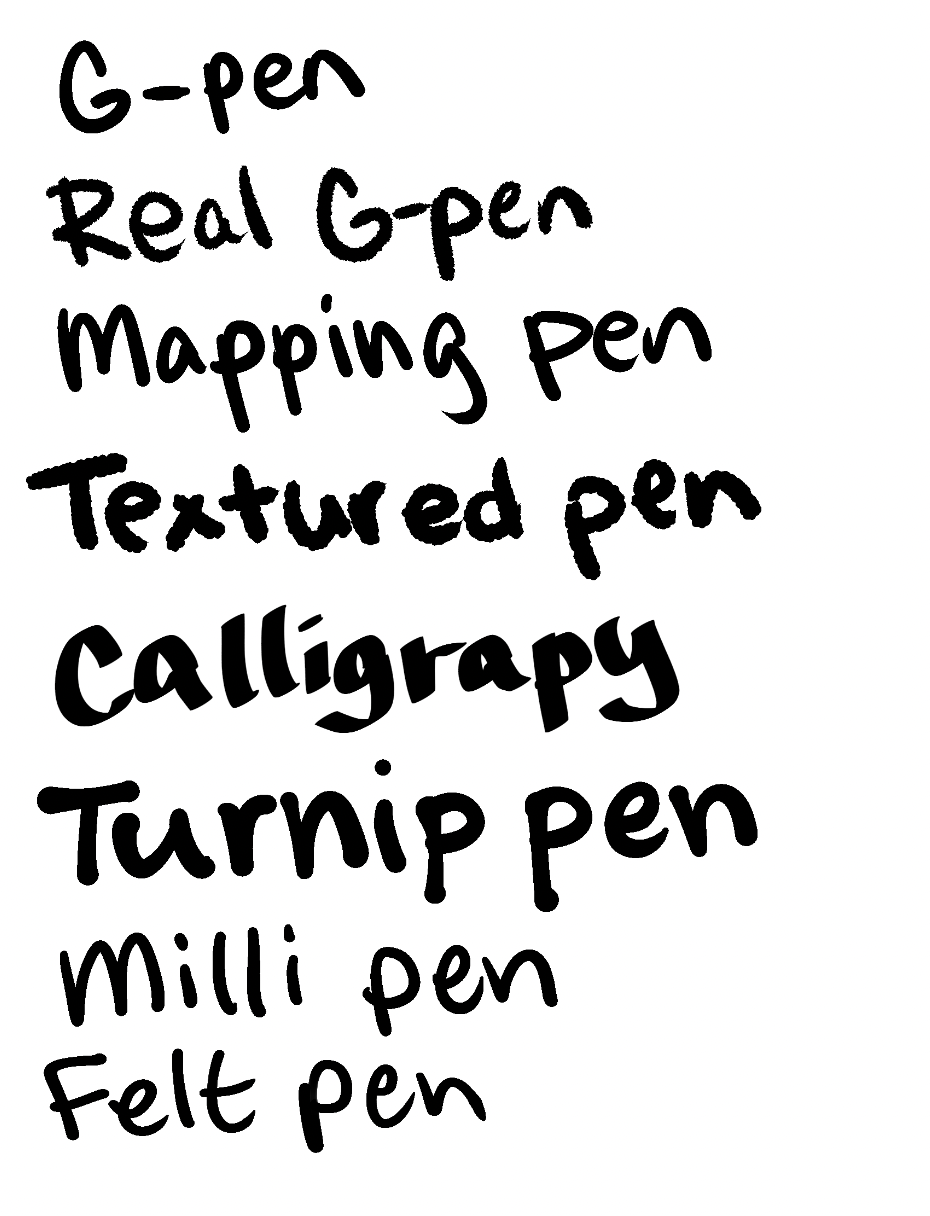 G-pen
Real G-pen
Mapping pen
Textured pen
Calligrapy
Turnip pen
Milli pen
Felt pen